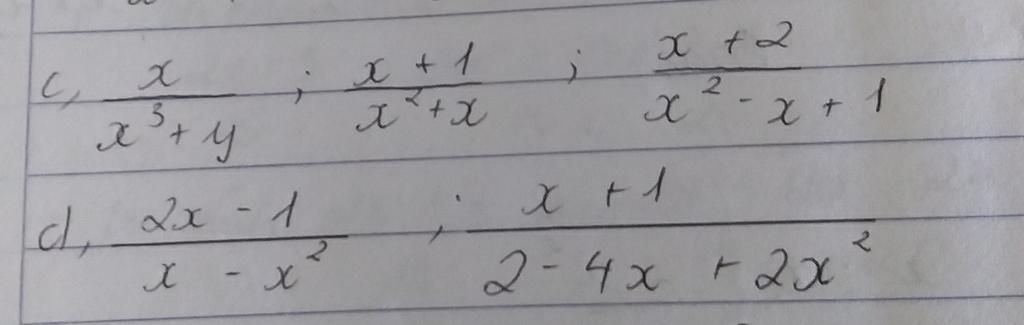 c, x/(x³+y) ; (x+1)/(x²+x) ; (x+2)/(x²-x+1)
d, (2x-1)/(x-x²) ; (x+1)/(2-4x+2x²)